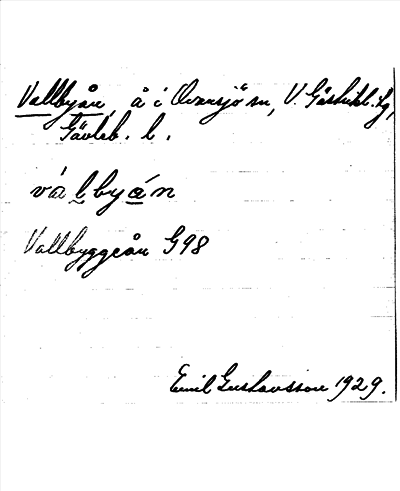 Vallbyån, å i Ovansjö sn, V. Gästrikl. tg,
Gävleb. l.
válbyán
Vallbyggeån G98
Emil Gustavsson 1929.